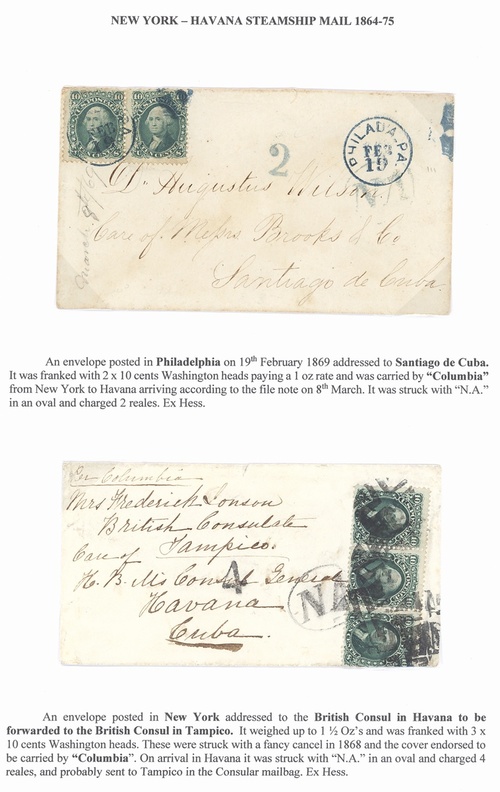 NEW YORK – HAVANA STEAMSHIP MAIL 1864-75
10 10 10 10
PHILADA. PA.
FEB
19
2
N.A.
March 8th/69
Dr. Augustus Wilson
Care of Messrs Brooks & Co
Santiago de Cuba.
An envelope posted in Philadelphia on 19th February 1869 addressed to Santiago de Cuba.
It was franked with 2 x 10 cents Washington heads paying a 1 oz rate and was carried by “Columbia”
from New York to Havana arriving according to the file note on 8th March. It was struck with “N.A.”
in an oval and charged 2 reales. Ex Hess.
Per Columbia
Mrs Frederick Jonson
British Consulate
Tampico.
Care of
H. B. Ms Consul General
4
NA
Havana
Cuba.
An envelope posted in New York addressed to the British Consul in Havana to be
forwarded to the British Consul in Tampico. It weighed up to 1 ½ Oz's and was franked with 3 x
10 cents Washington heads. These were struck with a fancy cancel in 1868 and the cover endorsed to
be carried by “Columbia”. On arrival in Havana it was struck with “N.A.” in an oval and charged 4
reales, and probably sent to Tampico in the Consular mailbag. Ex Hess.